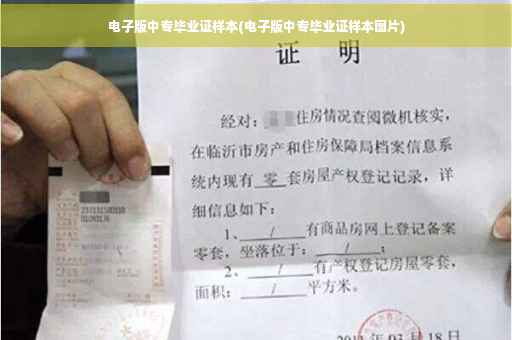 电子版中专毕业证样本(电子版中专毕业证样本图片)
证 明
经对: 住房情况查阅微机核实,
在临沂市房产和住房保障局档案信息系
统内现有 零 套房屋产权登记记录,详
细信息如下:
1、 / 有商品房网上登记备案
零套,坐落位于: / ;
2、 / 有产权登记房屋零套,
面积: / 平方米。
年03月18日